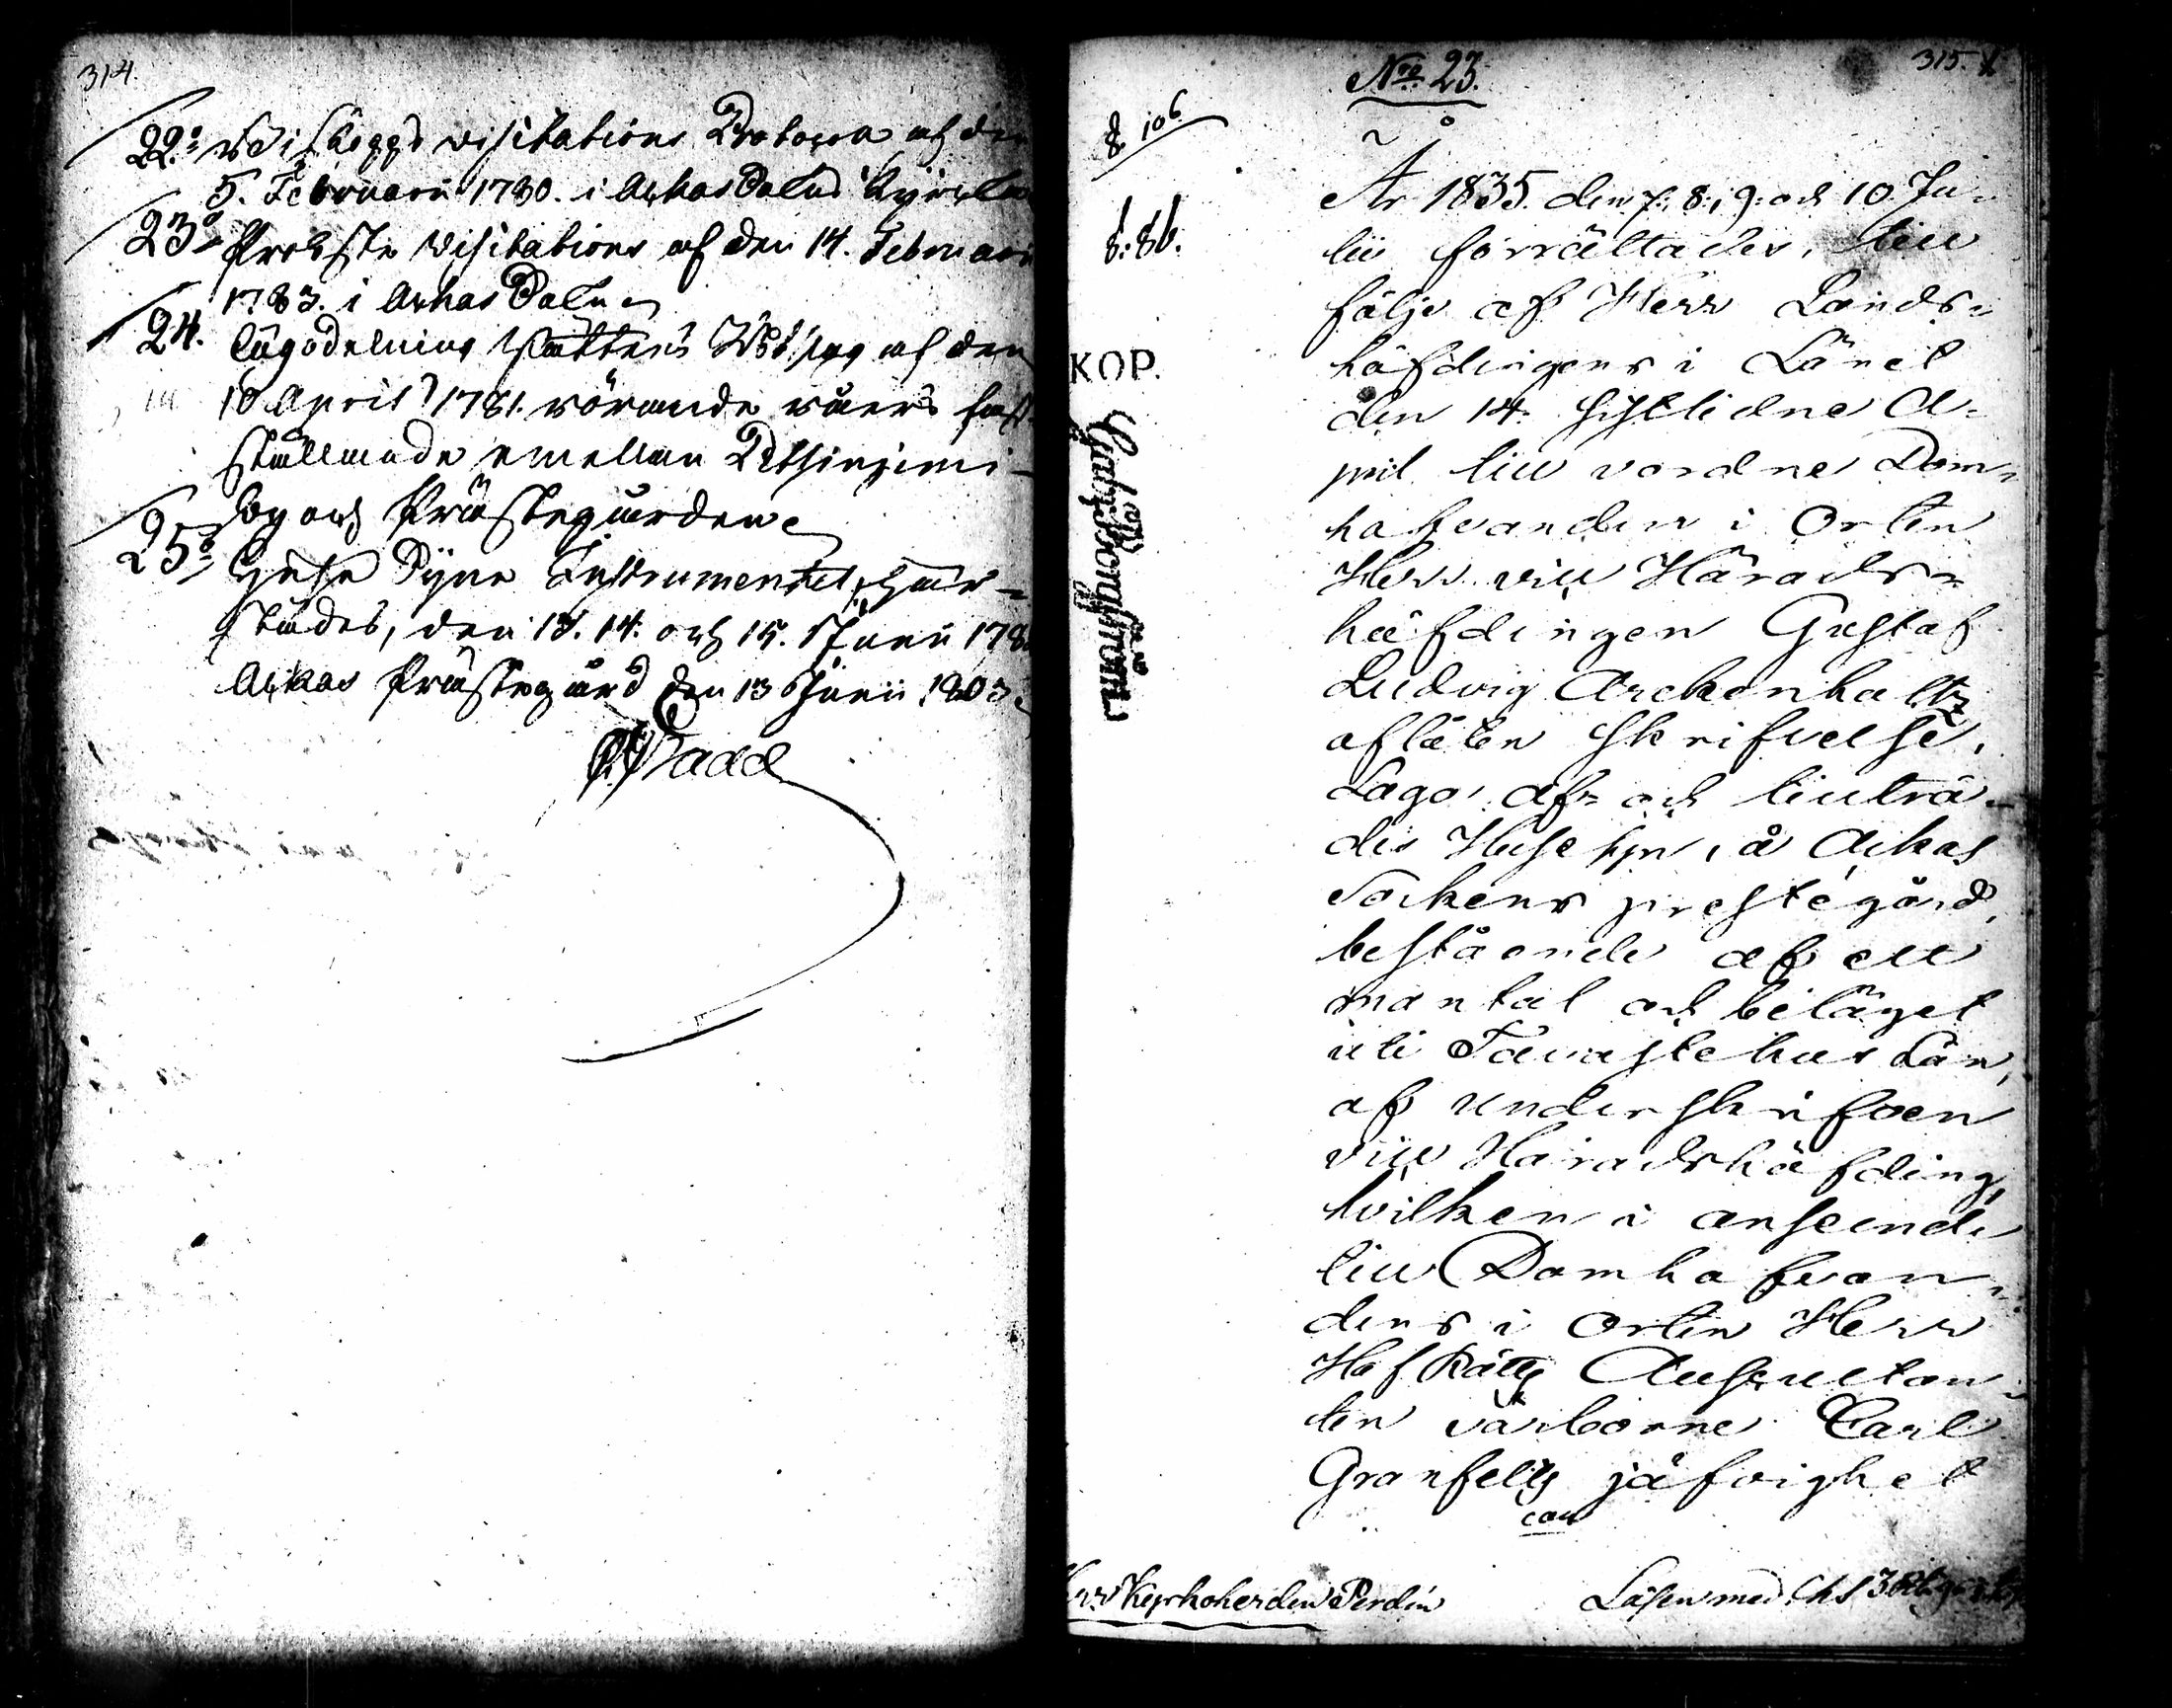 314.
22:o Biskopps visitations Protocoll af den
5. Februarii 1780. i Ackas
23:o Probste Visitations af den 14. Februarii
1783. i Ackas
24. Ägodelnings Rättens Utslag af den
10 April 1781. rörande råers fast
ställande emellan
by och Prästegården
25:o Husesyns Instrumentet, här-
städes, den 13. 14. och 15. Junii 178
Ackas Prästegård den 13 Junii 1803.
Gadd
315.
No 23.
§ 106
§: 86.
KOP.
År 1835. den 7: 8:, 9: och 10. Ju-
lii förrättades, till
följe af Herr Lands-
höfdingens i Länet
den 14. sistledne A-
pril till vordne Dom-
hafvanden i Orten
Herr vice Härads-
höfdingen Gustaf
Ludvig Arckenholtz
aflåten skrifvelse,
Laga af- och tillträ-
des Husesyn, å Ackas
Sockens prestegård,
bestående af ett
mantal och beläget
uti Tavastehus Län,
af underskrifven
vice Häradshöfding,
hvilken i anseende
till Domhafvan-
dens i Orten Herr
HofRätts Auscultan-
ten välborne Carl
Granfelts jäfvighet
Herr Kyrkoherden Perdén
Lösen med